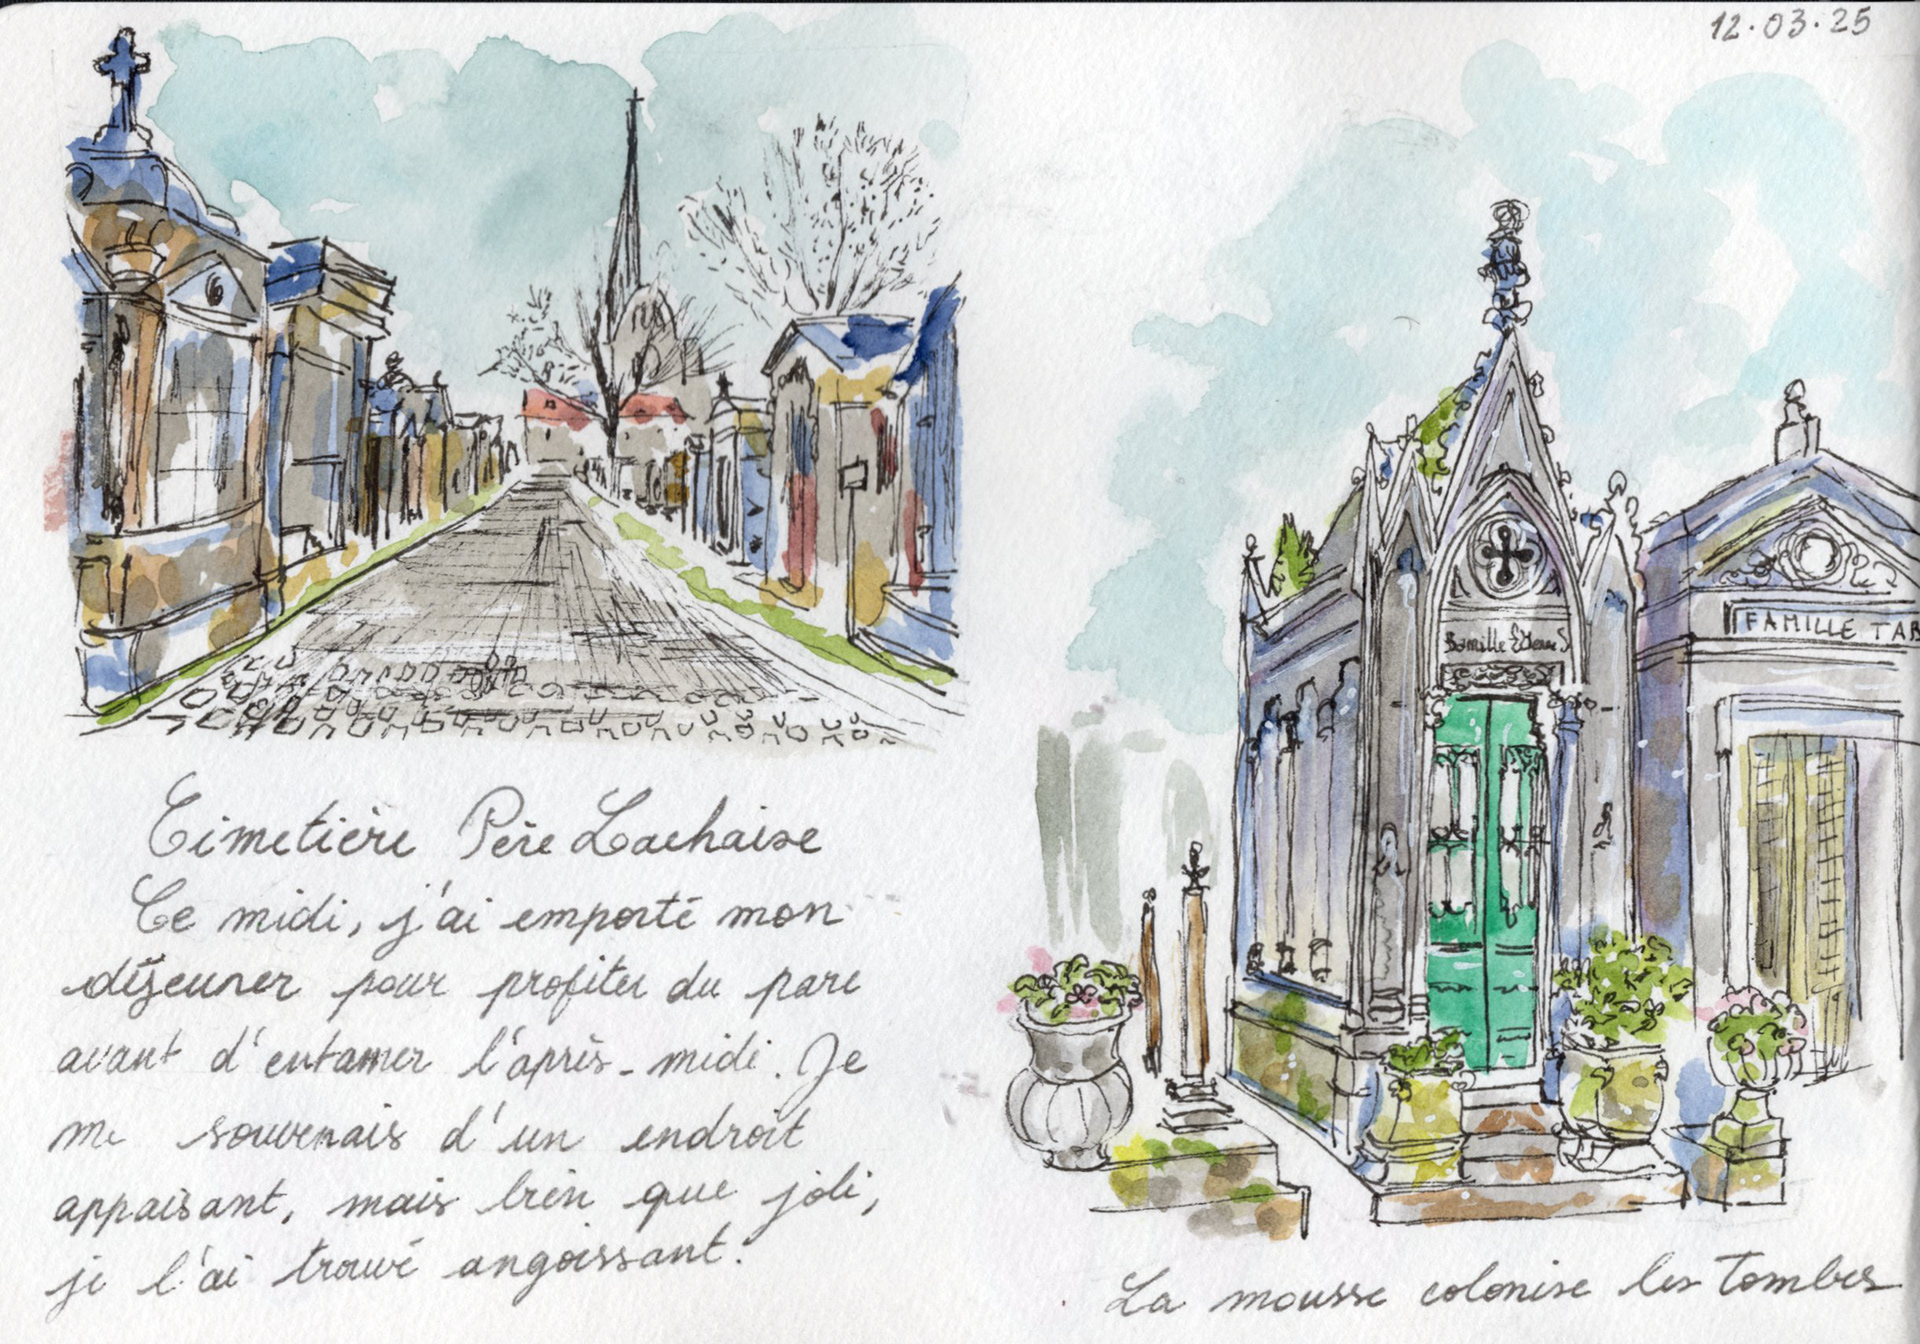 12.03.25
FAMILLE TAB
Cimetière Père Lachaise
Ce midi, j'ai emporté mon
déjeuner pour profiter du parc
avant d'entamer l'après-midi. Je
me souvenais d'un endroit
appaisant, mais bien que joli,
je l'ai trouvé angoissant.
La mousse colonise les tombes